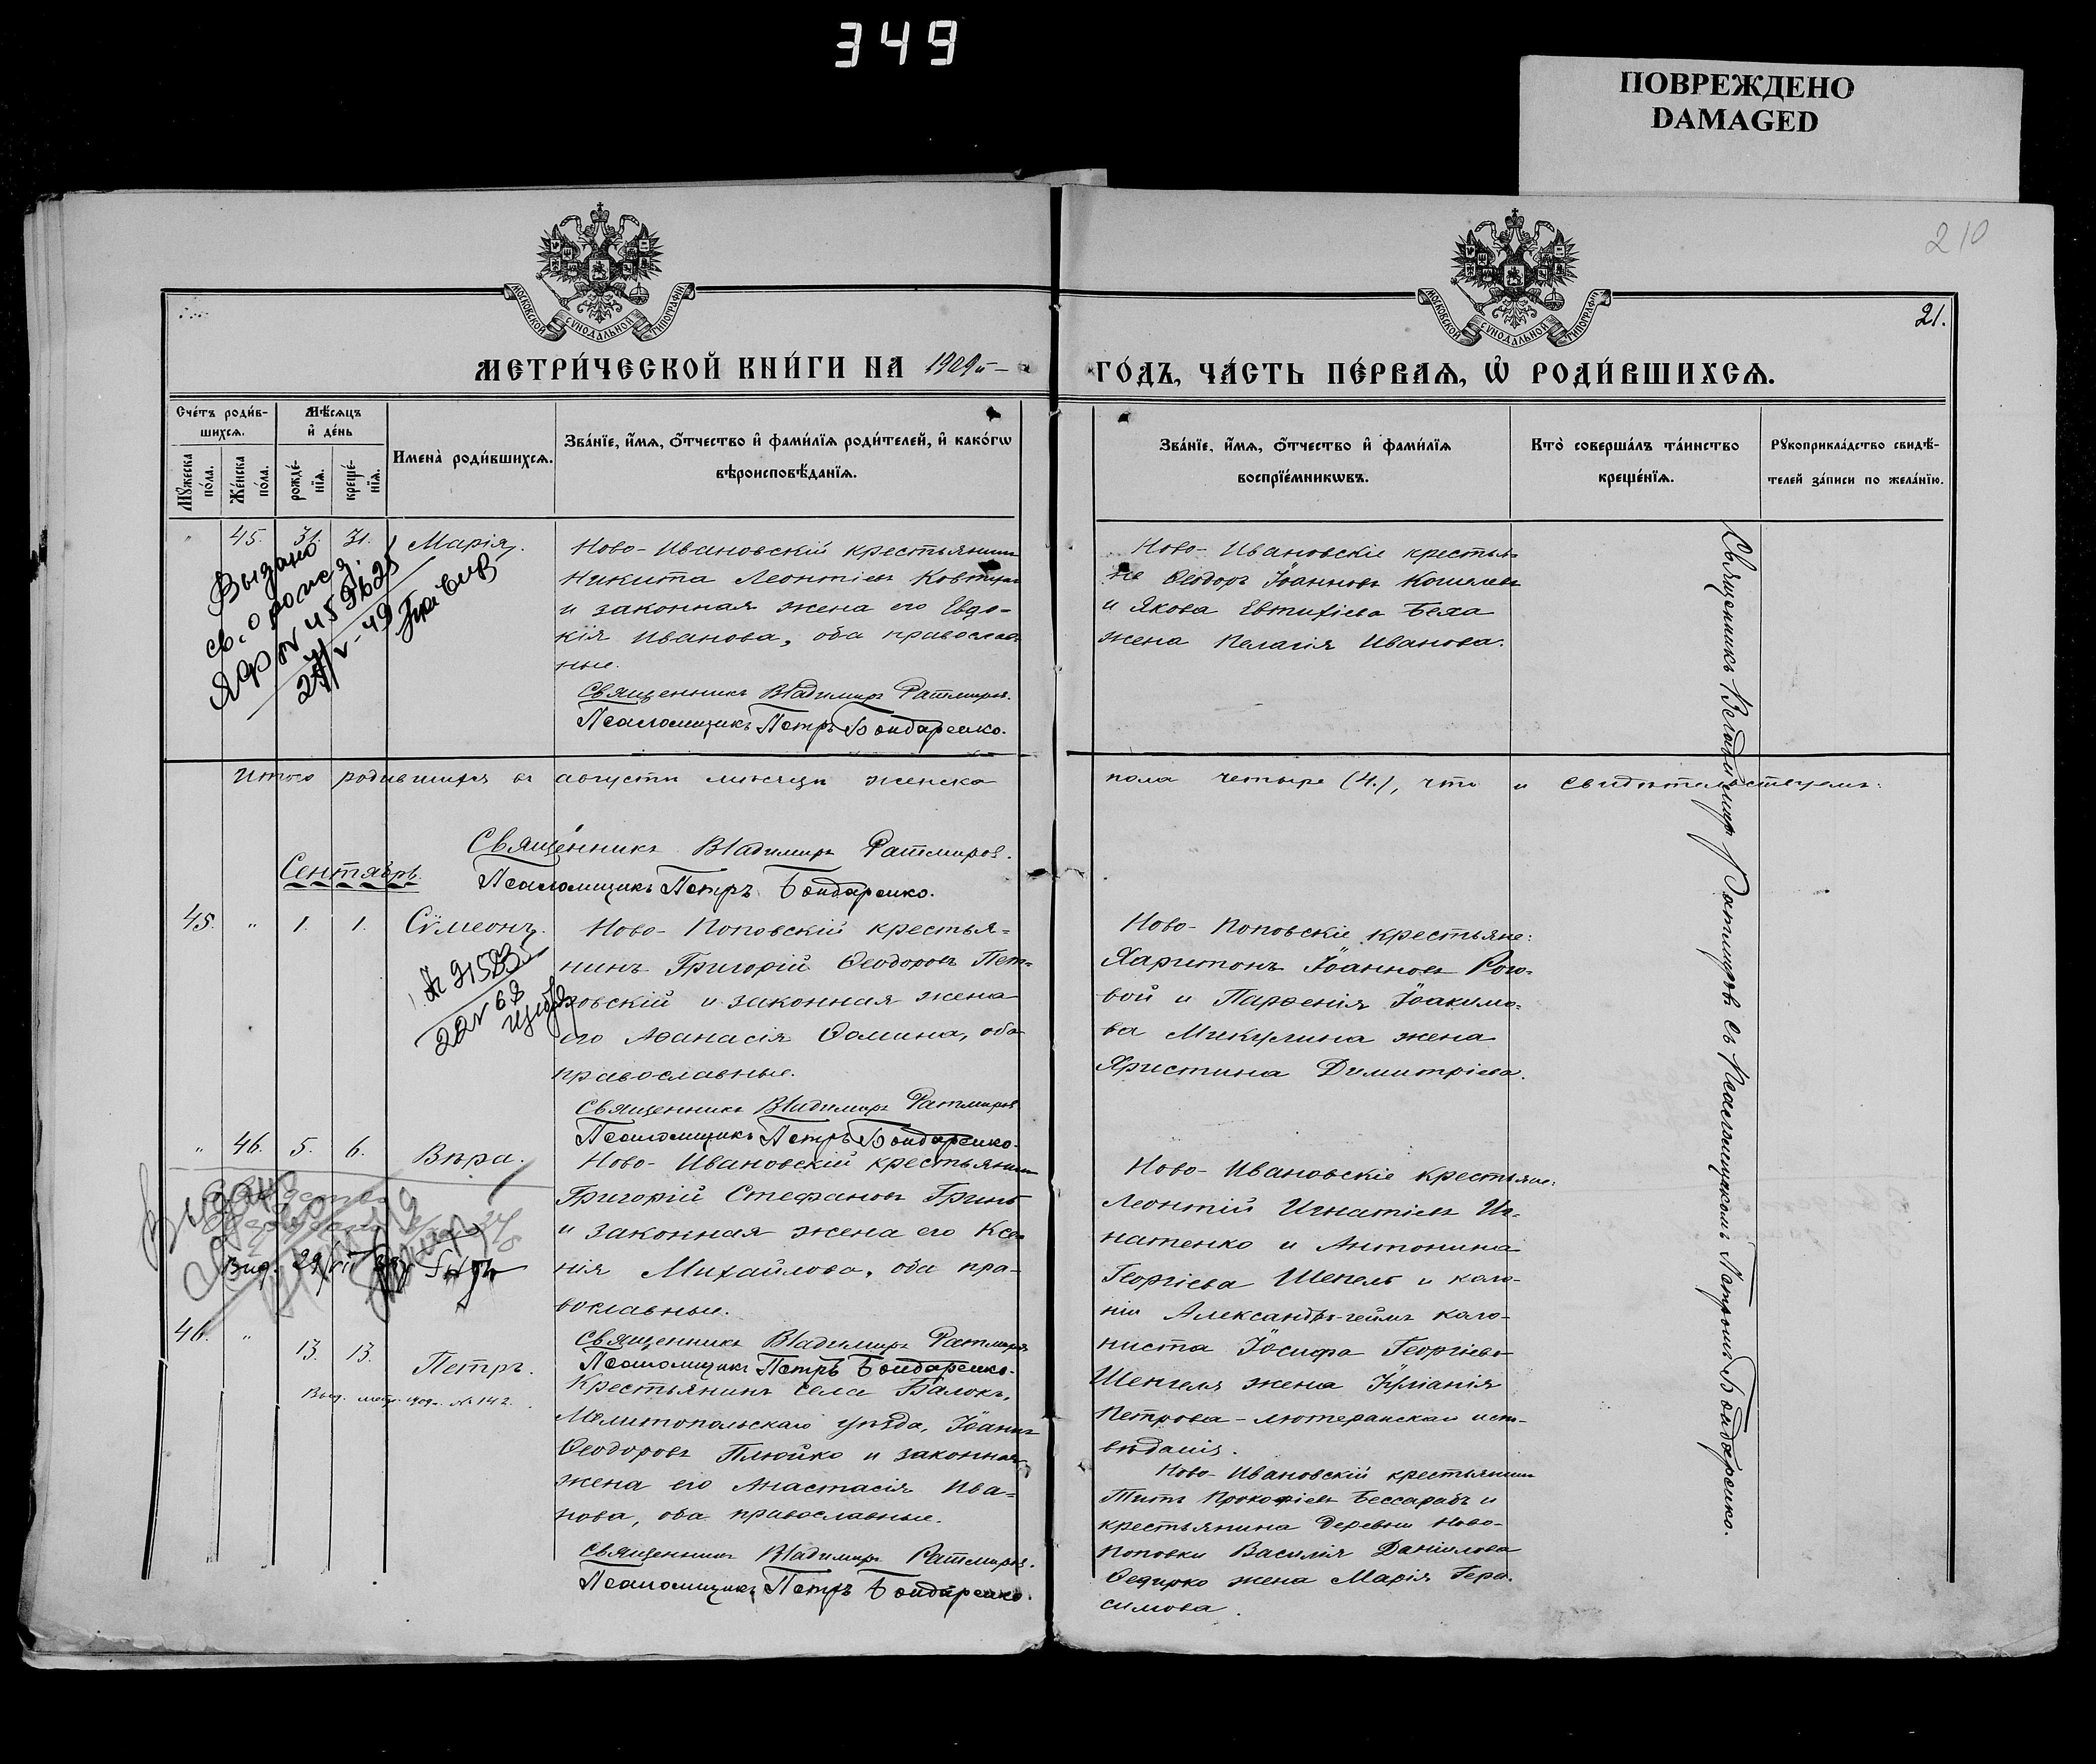 349
ПОВРЕЖДЕНО
DAMAGED
210
21.
МОСКОВСКОЙ СѴНОДАЛЬНОЙ ТИПОГРАФІИ
МОСКОВСКОЙ СѴНОДАЛЬНОЙ ТИПОГРАФІИ
МЕТРИ́ЧЕСКОЙ КНИ́ГИ НА 1909й
ГО́ДЪ, ЧА́СТЬ ПЕ́РВАѦ, Ѡ҆ РОДИ́ВШИХСѦ.
Сче́тъ роди́в-
шихсѧ.
Мѣ́сѧцъ
и҆ де́нь
Мꙋ́жеска
по́ла.
Же́нска
по́ла.
рожде́-
нїѧ.
креще́-
нїѧ.
Имена̀ роди́вшихсѧ.
Зва́нїе, и҆́мѧ, ѻ҆́тчество и҆ фами́лїѧ роди́телей, и҆ како́гѡ
вѣроисповѣ́данїѧ.
Зва́нїе, и҆́мѧ, ѻ҆́тчество и҆ фами́лїѧ
воспрїе́мникѡвъ.
Кто̀ соверша́лъ та́инство
креще́нїѧ.
Рꙋкоприкла́дство свидѣ́-
телей за́писи по жела́нїю.
" 45. 31. 31. Марія.
Выдано
св. о рожд.
ЯФ № 459625
Ново-Ивановскій крестьянинъ
Никита Леонтіевъ Ковтунъ
и законная жена его Евдо-
кія Иванова, оба православ-
ные.
Священникъ Владимиръ Ратмировъ.
Псаломщикъ Петръ Бондаренко.
Ново-Ивановскіе крестья-
не Ѳеодоръ Іоанновъ Кошелевъ
и Якова Евтихіева Беха
жена Пелагія Иванова.
Итого родившихся въ августѣ мѣсяцѣ женска
пола четыре (4.), что и свидѣтельствуемъ:
Священникъ Владимиръ Ратмировъ.
Псаломщикъ Петръ Бондаренко.
Сентябрь.
45. " 1. 1. Сѵмеонъ.
№ 21583
Ново-Поповскій крестья-
нинъ Григорій Ѳеодоровъ Пет-
ровскій и законная жена
его Аѳанасія Ѳомина, оба
православные.
Священникъ Владимиръ Ратмировъ
Псаломщикъ Петръ Бондаренко.
Ново-Поповскіе крестьяне:
Харитонъ Іоанновъ Рого-
вой и Парѳенія Іоакимо-
ва Микулина жена
Христина Димитріева.
" 46. 5. 6. Вѣра.
Видано
Ново-Ивановскій крестьянинъ
Григорій Стефановъ Гринь
и законная жена его Ксе-
нія Михайлова, оба пра-
вославные.
Священникъ Владимиръ Ратмировъ
Псаломщикъ Петръ Бондаренко.
Ново-Ивановскіе крестьяне:
Леонтій Игнатіевъ Иг-
натенко и Антонина
Георгіева Шепель и коло-
ніи Александръ-геймъ коло-
ниста Іосифа Георгіева
Шенгеля жена Іуліанія
Петрова-лютеранскаго испо-
вѣданія.
46. " 13. 13. Петръ.
Выд. метр. 1909г. № 142.
Крестьянинъ села Балокъ,
Мелитопольскаго уѣзда, Іоаннъ
Ѳеодоровъ Плюйко и законная
жена его Анастасія Ива-
нова, оба православные.
Священникъ Владимиръ Ратмировъ.
Псаломщикъ Петръ Бондаренко.
Ново-Ивановскій крестьянинъ
Титъ Прокофіевъ Бессарабъ и
крестьянина деревни Ново-
Поповки Василія Даніилова
Ѳедирко жена Марія Гера-
симова.
Священникъ Владимиръ Ратмировъ съ Псаломщикомъ Петромъ Бондаренко.